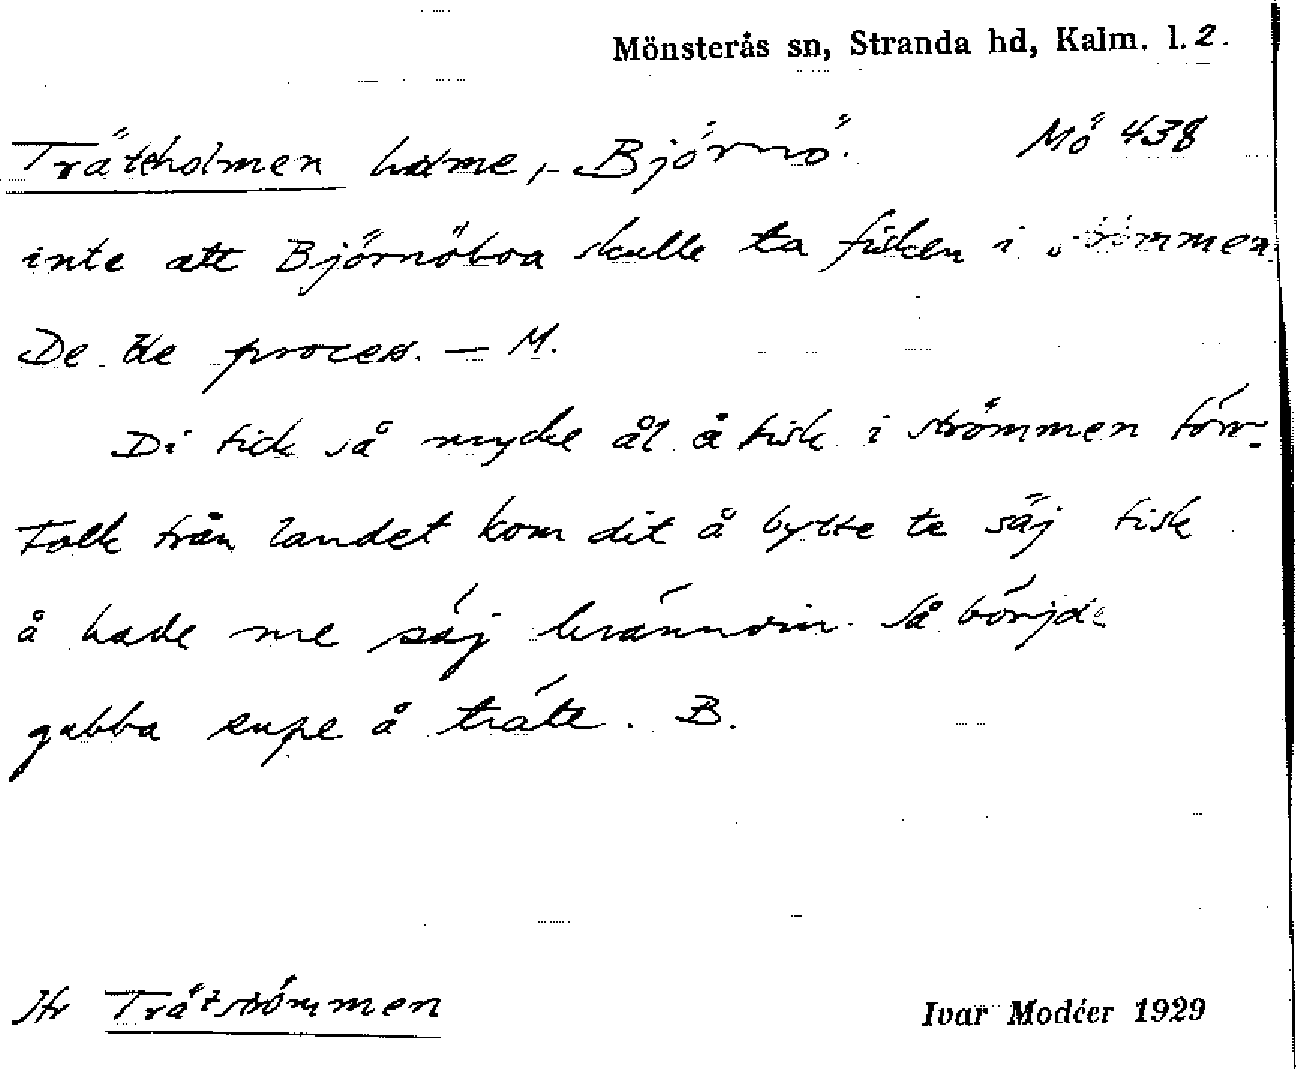 Mönsterås sn, Stranda hd, Kalm. l. 2.
Träteholmen holme, Björnö. Mö 438
inte att Björnöboa skulle ta fisken i strömmen.
De ble process. — M.
Di fick så mycke ål å fisk i strömmen förr.
Folk från landet kom dit å bytte te säj fisk
å hade me säj brännvin. Så börjde
gubba supe å träte. B.
Jfr Trätströmmen
Ivar Modéer 1929